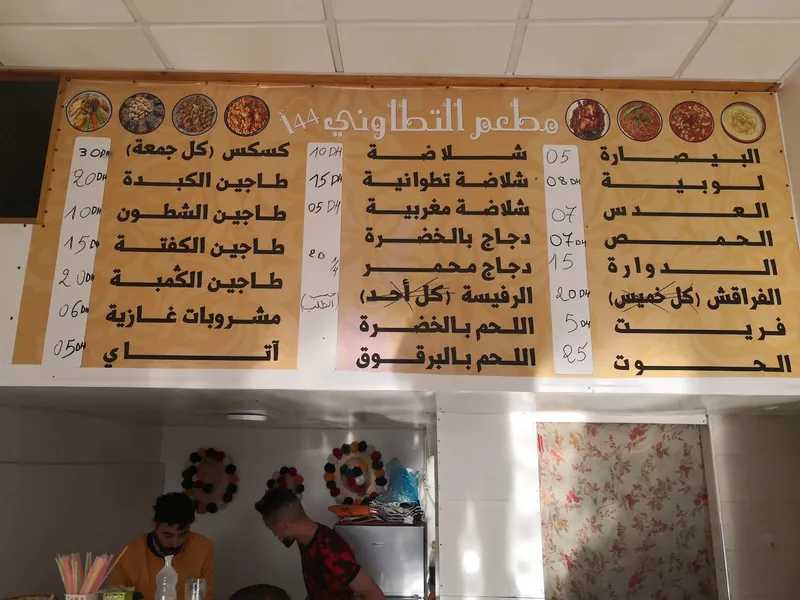 مطعم التطاوني
البيصارة 05
لوبية 08DH
العدس 07
الحمص 07DH
الدوارة 15
الفراقش (كل خميس) 20DH
فريت 5DH
الحوت 25
شلاضة 10DH
شلاضة تطوانية 15DH
شلاضة مغربية 05DH
دجاج بالخضرة
دجاج محمر 20 1/4
الرفيسة (كل أحد) (حسب الطلب)
اللحم بالخضرة
اللحم بالبرقوق
كسكس (كل جمعة) 30DH
طاجين الكبدة 20DH
طاجين الشطون 10DH
طاجين الكفتة 15DH
طاجين الكُمبة 20DH
مشروبات غازية 06DH
آتاي 05DH